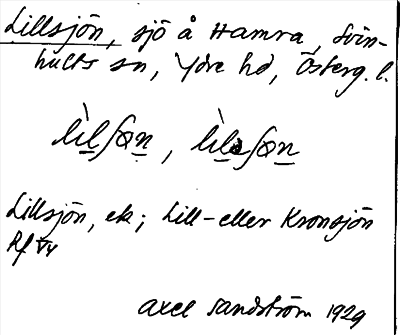 Lillsjön, sjö å Hamra, Svin-
hults sn, Ydre hd, Österg. l.
lìlʃøn, lìləʃøn
Lillsjön, ek; Lill- eller Kronsjön
Rf
Axel Sandström 1929